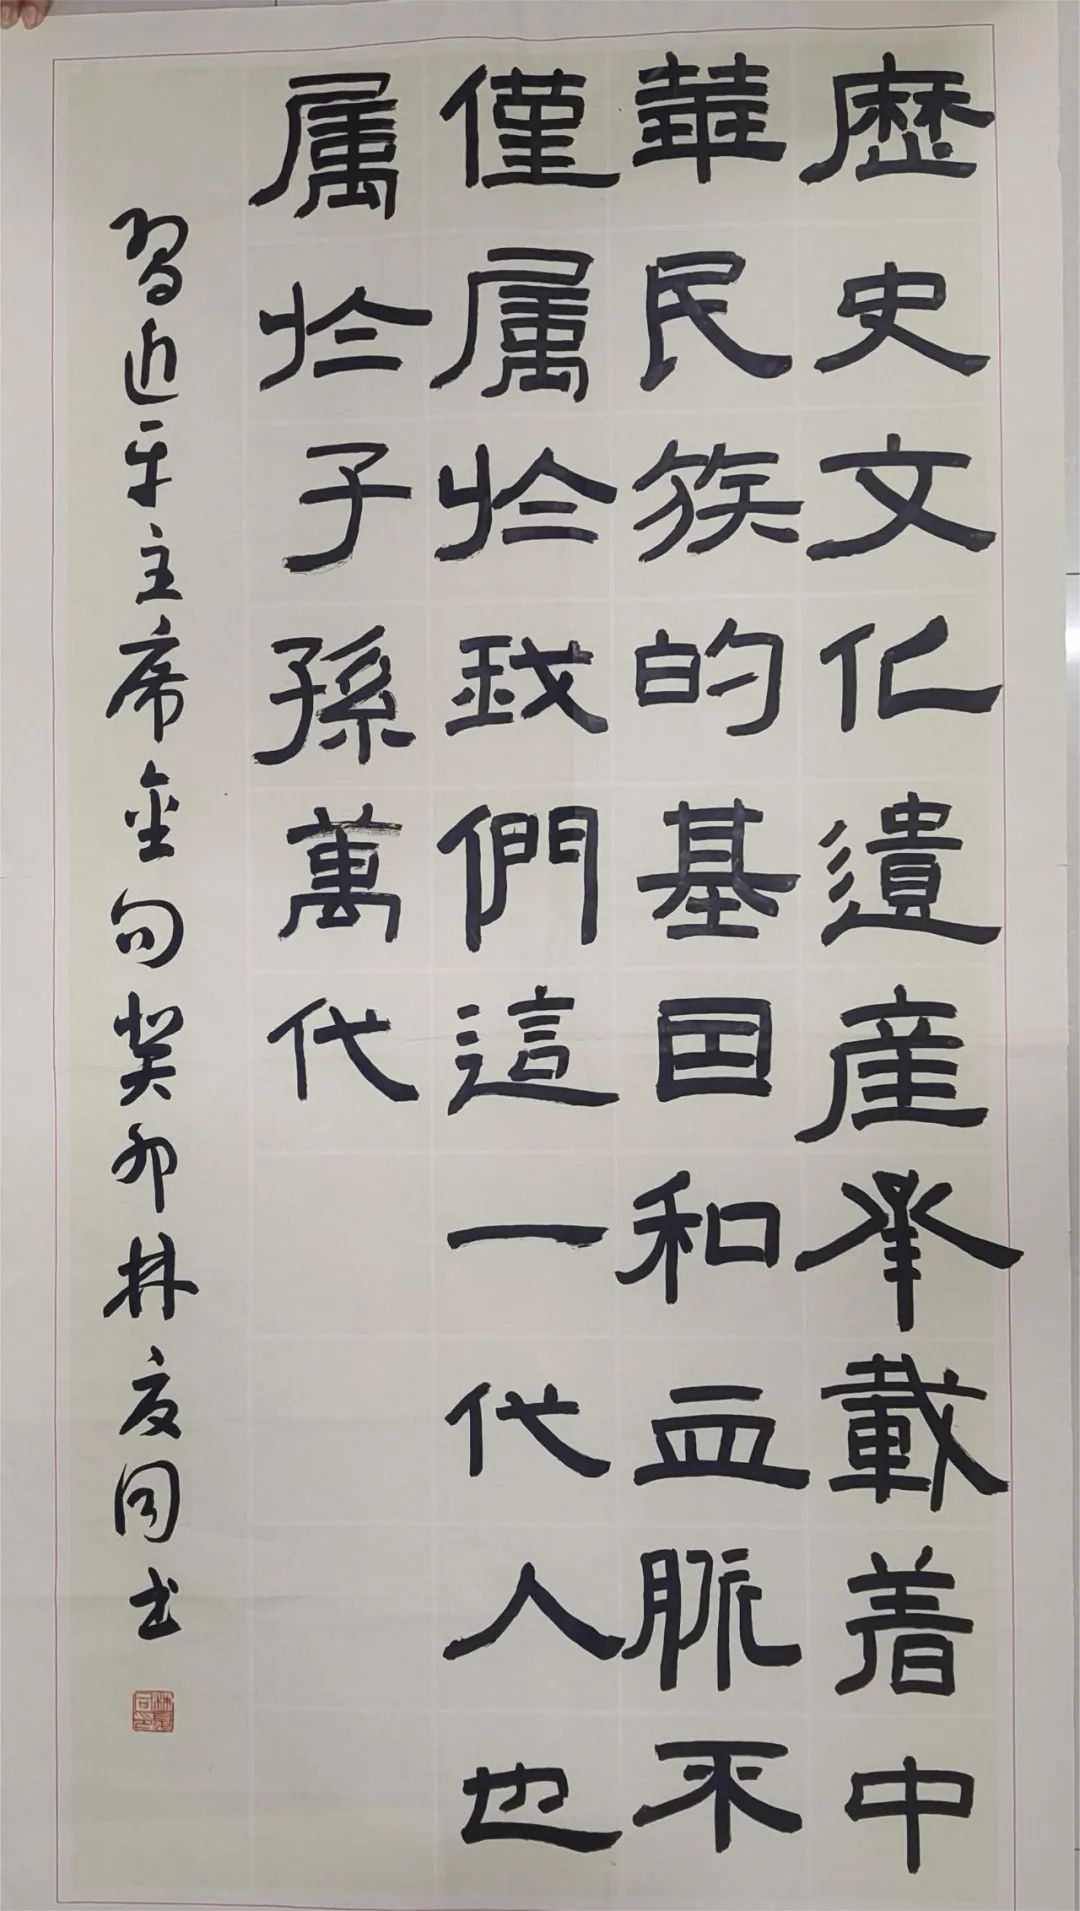 歷史文化遺産承載着中
華民族的基因和血脈不
僅属於我們這一代人也
属於子孫萬代
習近平主席金句癸卯林友同书